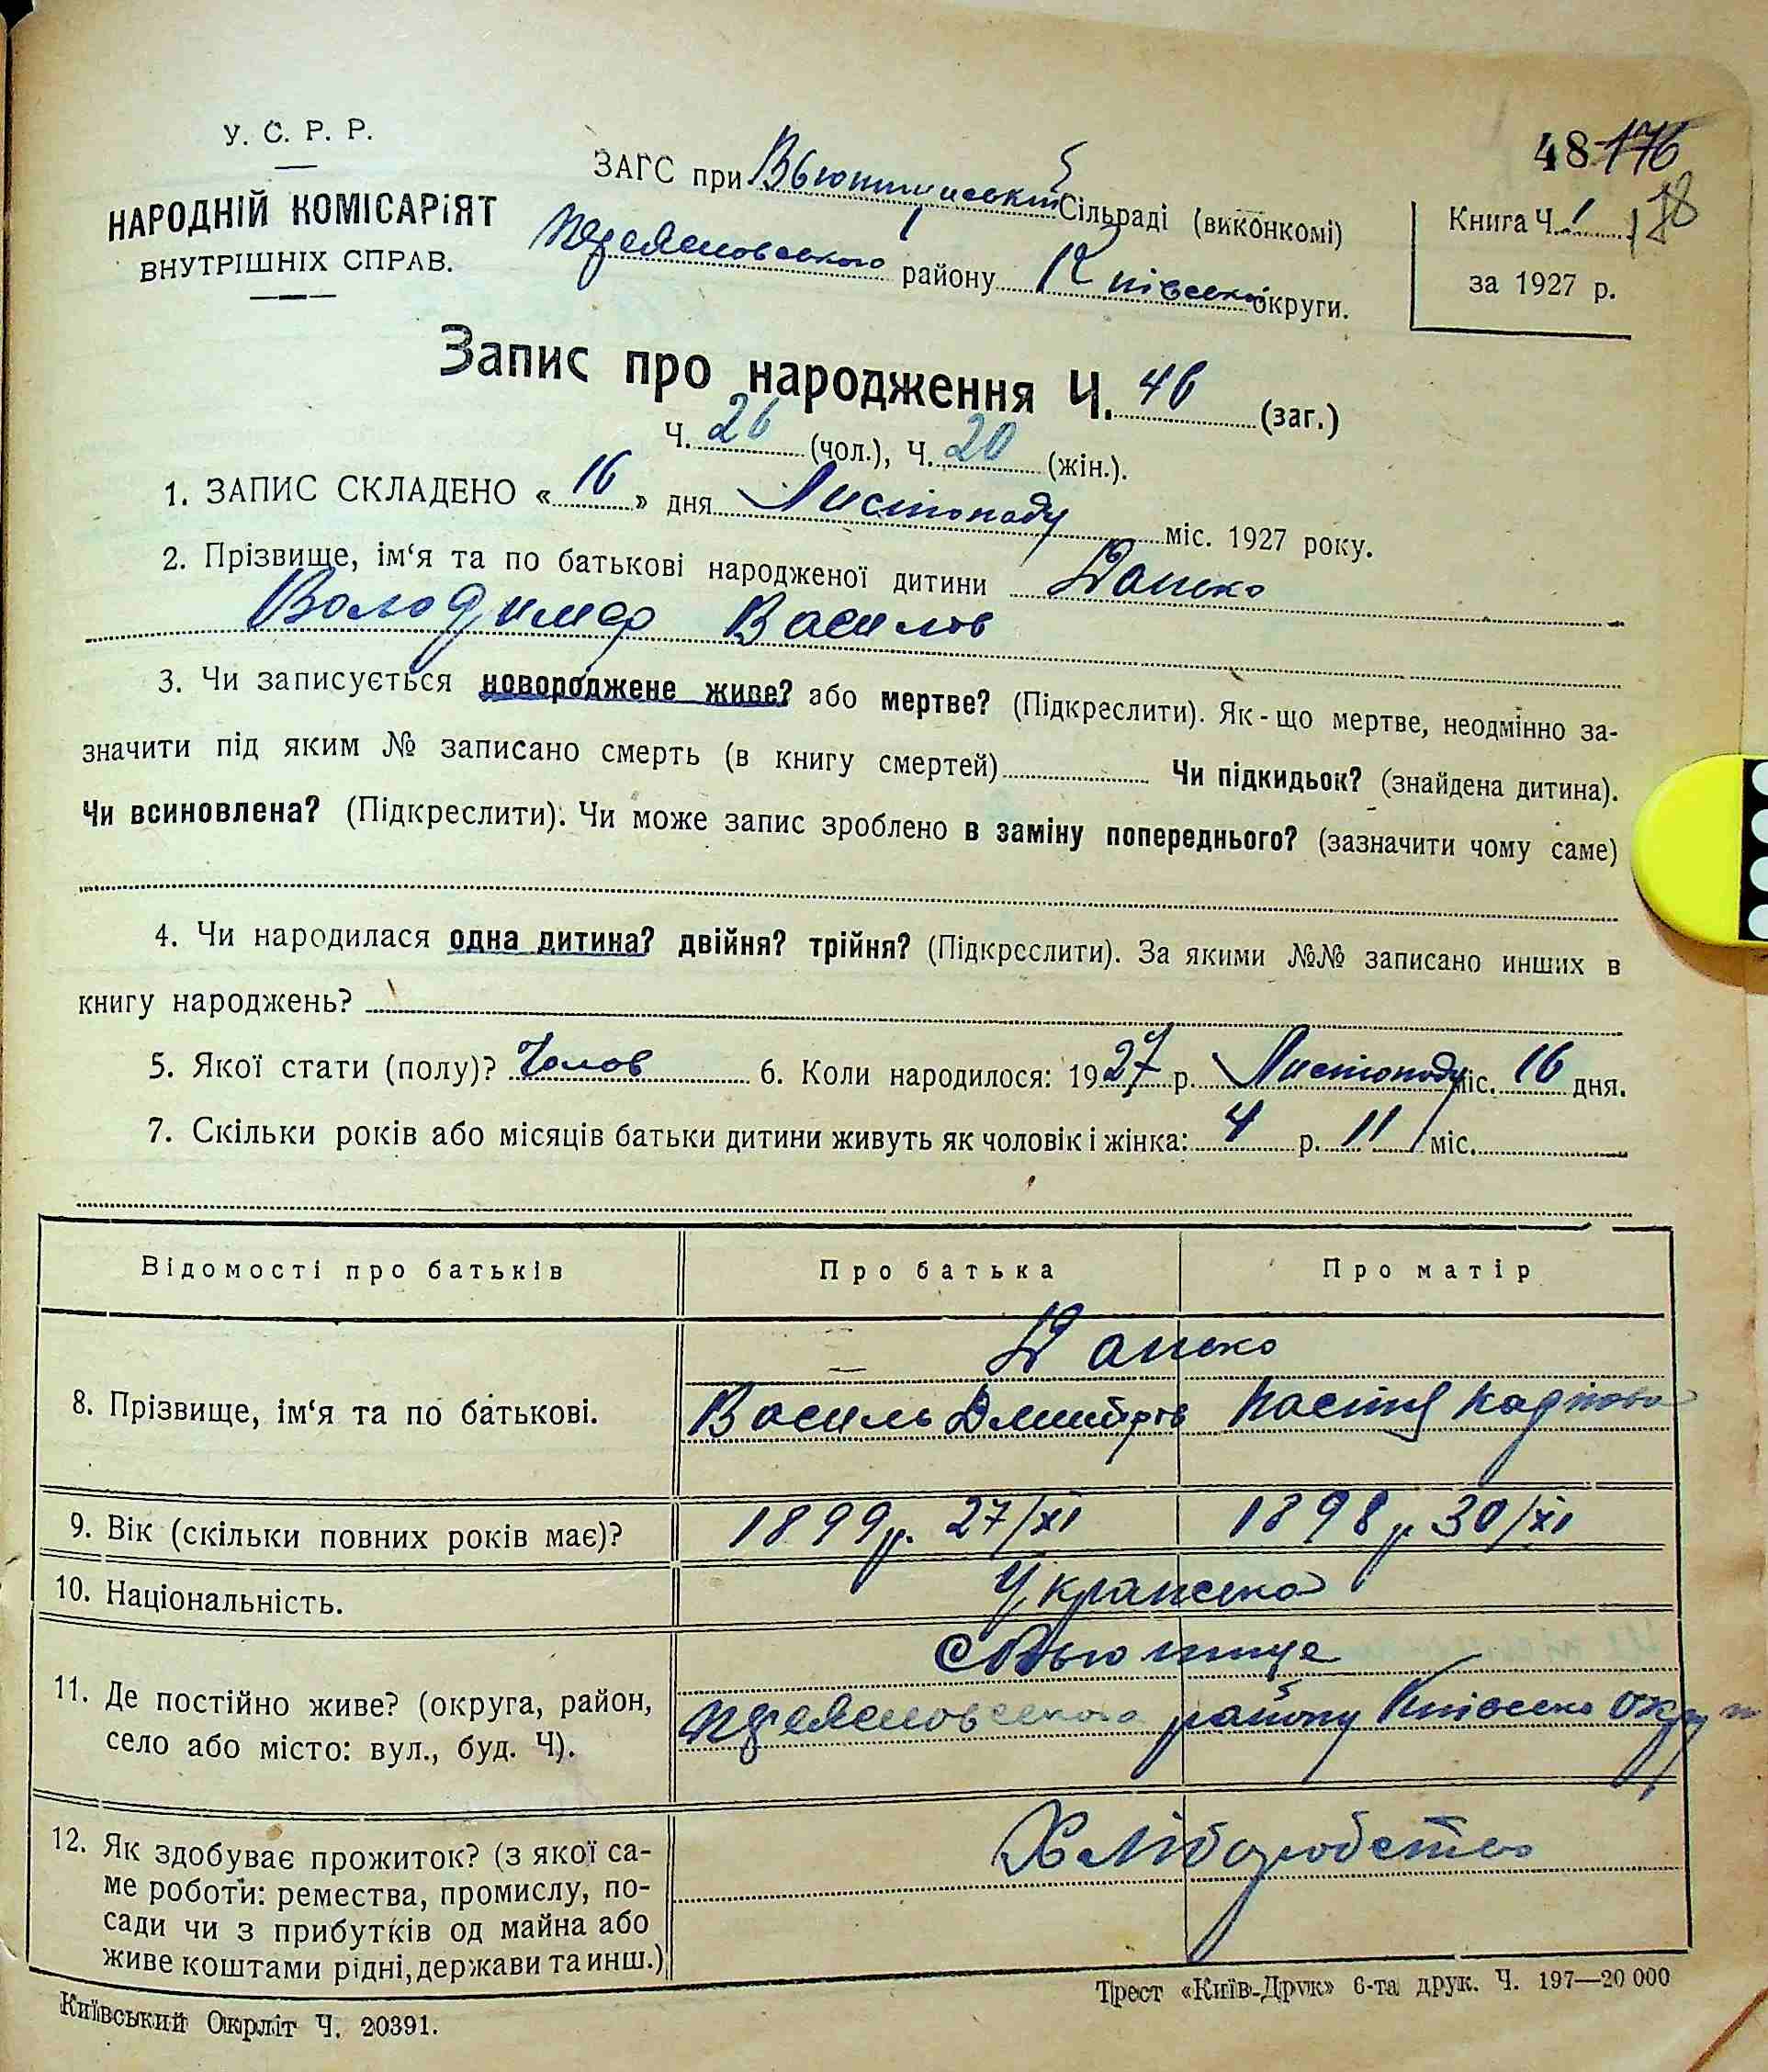 У. С. Р. Р.
НАРОДНІЙ КОМІСАРІЯТ
ВНУТРІШНІХ СПРАВ.
ЗАГС при Вьюнищиській Сільраді (виконкомі)
Переяславського району Київської округи.
48 176
178
Книга Ч. 1
за 1927 р.
Запис про народження Ч. 46 (заг.)
Ч. 26 (чол.), Ч. 20 (жін.).
1. ЗАПИС СКЛАДЕНО « 16 » дня Листопаду міс. 1927 року.
2. Прізвище, ім‘я та по батькові народженої дитини
Володимер Василів
3. Чи записується новороджене живе? або мертве? (Підкреслити). Як-що мертве, неодмінно за-
значити під яким № записано смерть (в книгу смертей) Чи підкидьок? (знайдена дитина).
Чи всиновлена? (Підкреслити). Чи може запис зроблено в заміну попереднього? (зазначити чому саме)
4. Чи народилася одна дитина? двійня? трійня? (Підкреслити). За якими №№ записано инших в
книгу народжень?
5. Якої стати (полу)? Чолов 6. Коли народилося: 1927 р. Листопаду міс. 16 дня.
7. Скільки років або місяців батьки дитини живуть як чоловік і жінка: 4 р. 11 міс.
Відомості про батьків Про батька Про матір
8. Прізвище, ім‘я та по батькові.
Василь Дмитрів Настя Карпова
9. Вік (скільки повних років має)? 1899 р. 27/XI 1898 р 30/XI
10. Національність. Українська
11. Де постійно живе? (округа, район,
село або місто: вул., буд. Ч).
с Вьюнище
Переяславського району Київсько Округи
12. Як здобуває прожиток? (з якої са-
ме роботи: ремества, промислу, по-
сади чи з прибутків од майна або
живе коштами рідні, держави та инш.)
Хліборобство
Київський Окрліт Ч. 20391.
Трест «Київ-Друк» 6-та друк. Ч. 197—20 000